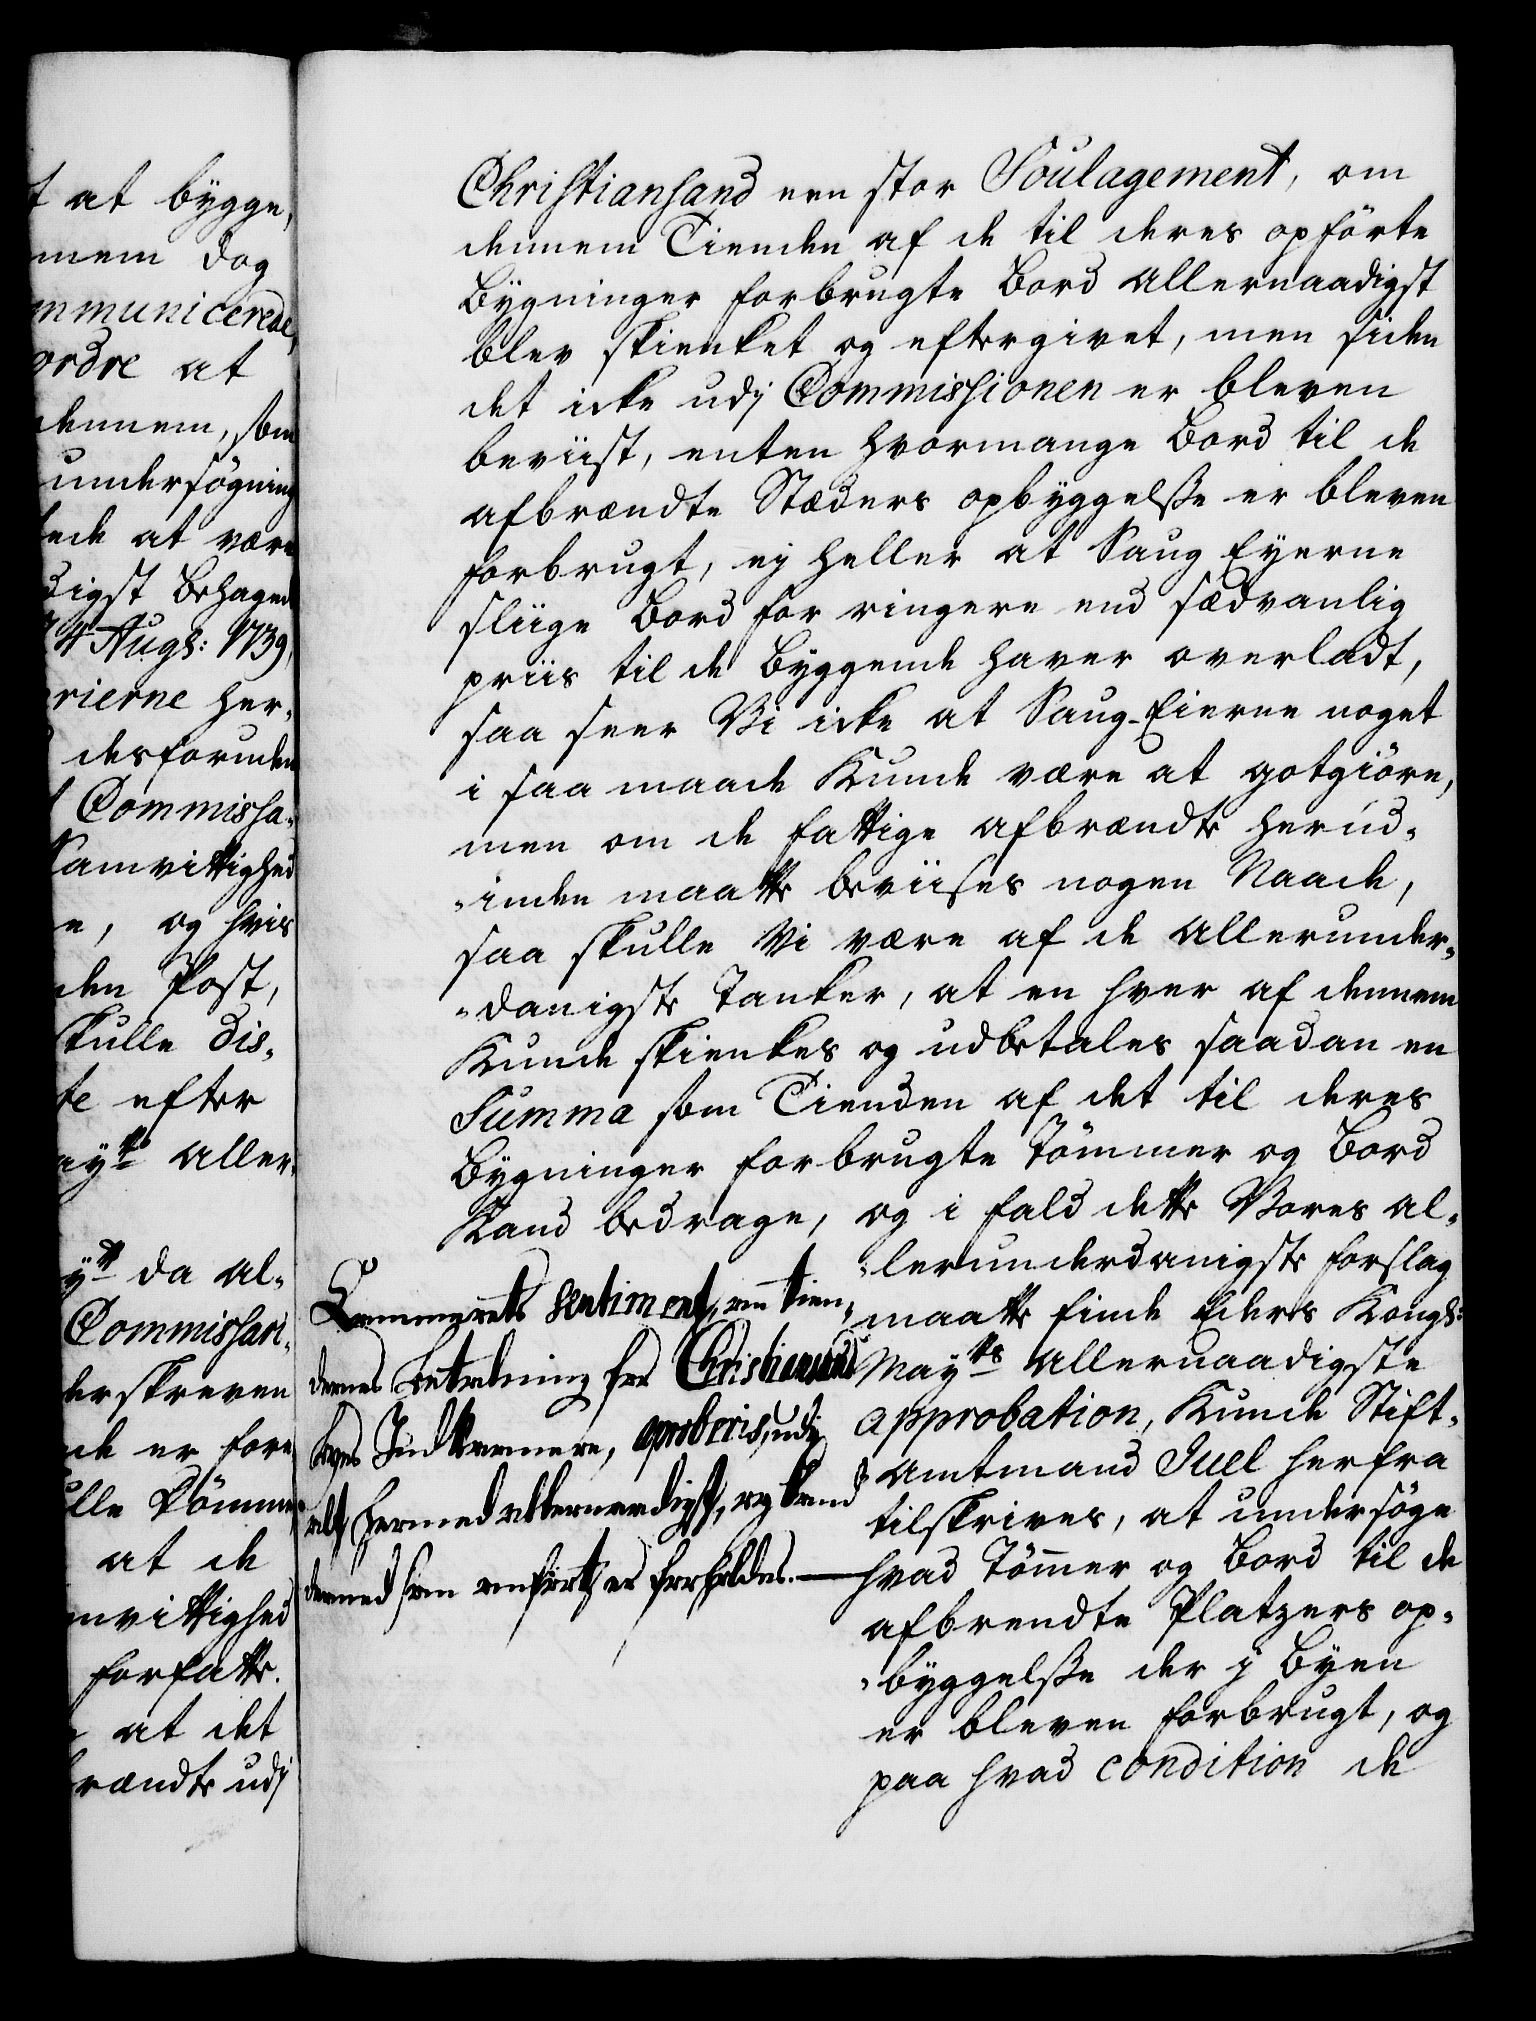 t at bygge,
mem dog
mmunicerede,
ordre at
dennem, som
undersøgning
at være
digst behaged
4 Augs: 1739,
rierne her-
desforuden
Commissa-
Samvittighed
e, og hvis
den Post,
skulle dis-
te efter
ay^tt aller-
y^tt da al-
Commissari-
derskreven
de er fore
ulle dömme
at de
mvittighed
forfatte.
at det
rændte udj
Christiansand een stor Soulagement, om
dennem Tienden af de til deres opförte
Bygninger forbrugte Bord allernaadigst
blev skienket og eftergivet, men siden
det icke udj Commissionen er bleven
beviist, enten hvormange Bord til de
afbrændte Stæders opbyggelsse er bleven
forbrugt, ej heller at Saug Eyerne
sliige Bord for ringere end sædvanlig
priis til de Byggende haver overladt,
saa seer Vi icke at Saug-Eierne noget
i saa maade kunde være at gotgiöre,
men om de fattige afbrændte herud-
-inden maatte beviises nogen Naade,
saa skulle Vi være af de allerunder-
-danigste Tanker, at en hver af dennem
kunde skienkes og udbetales saadan en
Summa som Tienden af det til deres
Bygninger forbrugte Tömmer og Bord
kand bedrage, og i fald dette Vores al-
-lerunderdanigste forslag
maatte finde Eders Kongl:
May^tts allernaadigste
approbation, kunde Stift-
Amtmand Juel herfra
tilskrives, at undersöge
hvad Tömmer og Bord til de
afbrendte Platzers op-
-byggelsse der j Byen
er bleven forbrugt, og
paa hvad condition de
Cammerets sentiment, om tien-
dernes betalning fra Christiansands
byes Indvaanere, aproberis, udj
alt hermed allernaadigst, og kand
dermed som anfört er forholdes.